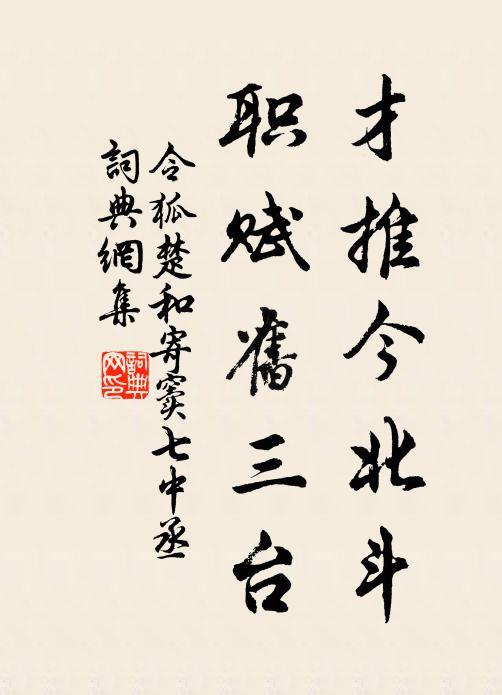 才推今北斗
职赋旧三台
令狐楚和寄窦七中丞
詞典網集
詞典网印